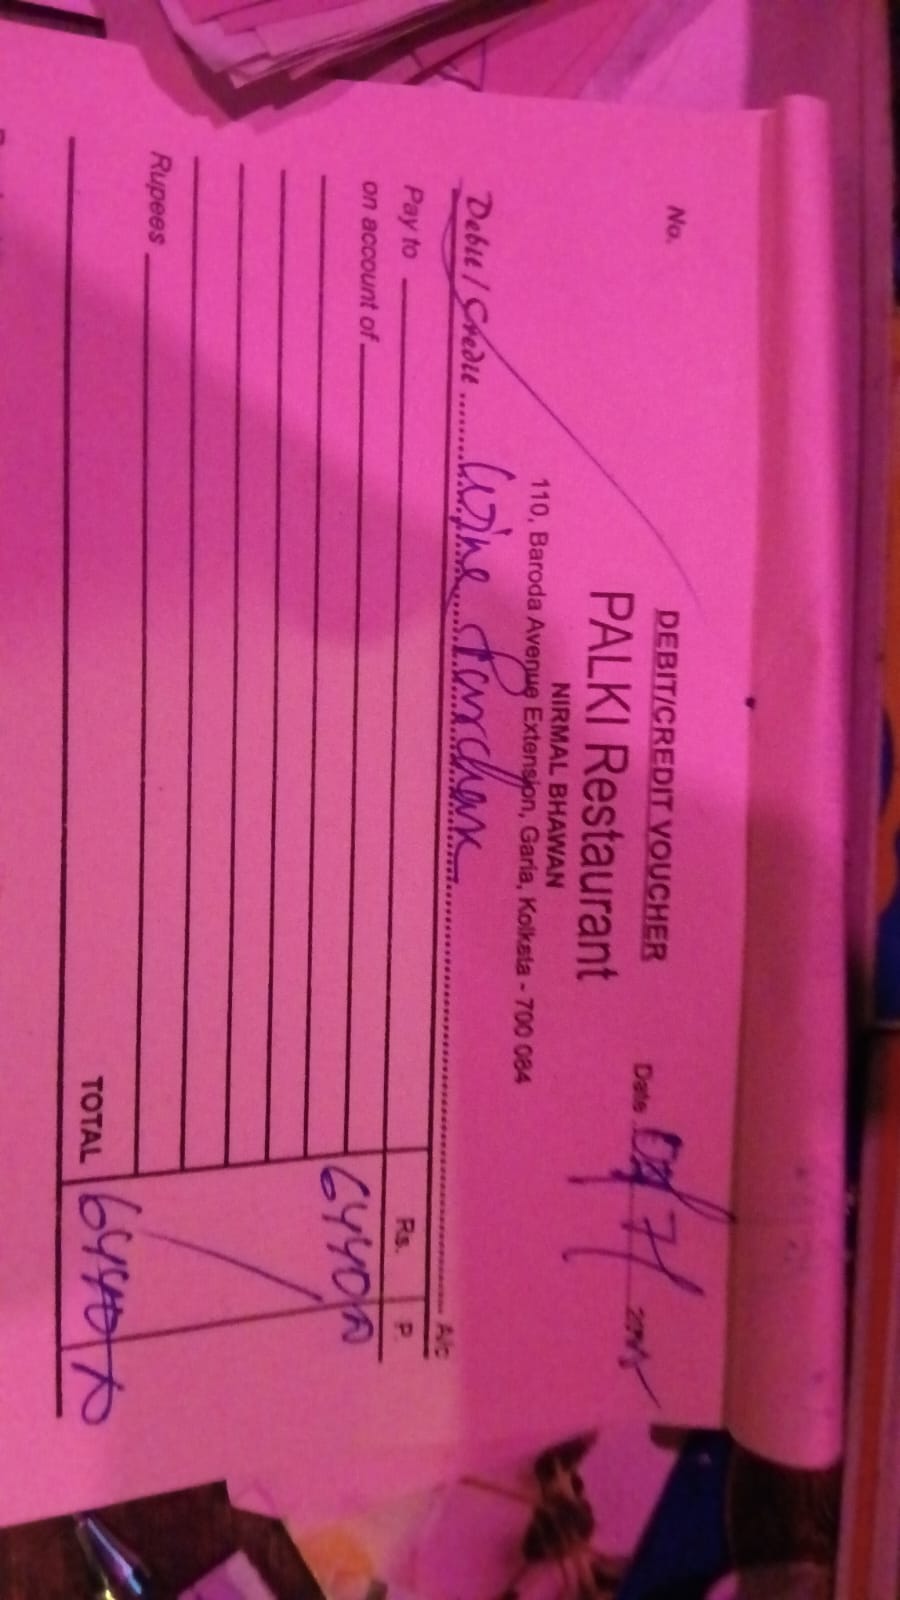 DEBIT/CREDIT VOUCHER
No.
PALKI Restaurant
Date 7/
NIRMAL BHAWAN
110, Baroda Avenue Extension, Garia, Kolkata - 700 084
Debit / Credit Wine Purchase A/c
Pay to Rs. P.
on account of 6440
Rupees
TOTAL 6440